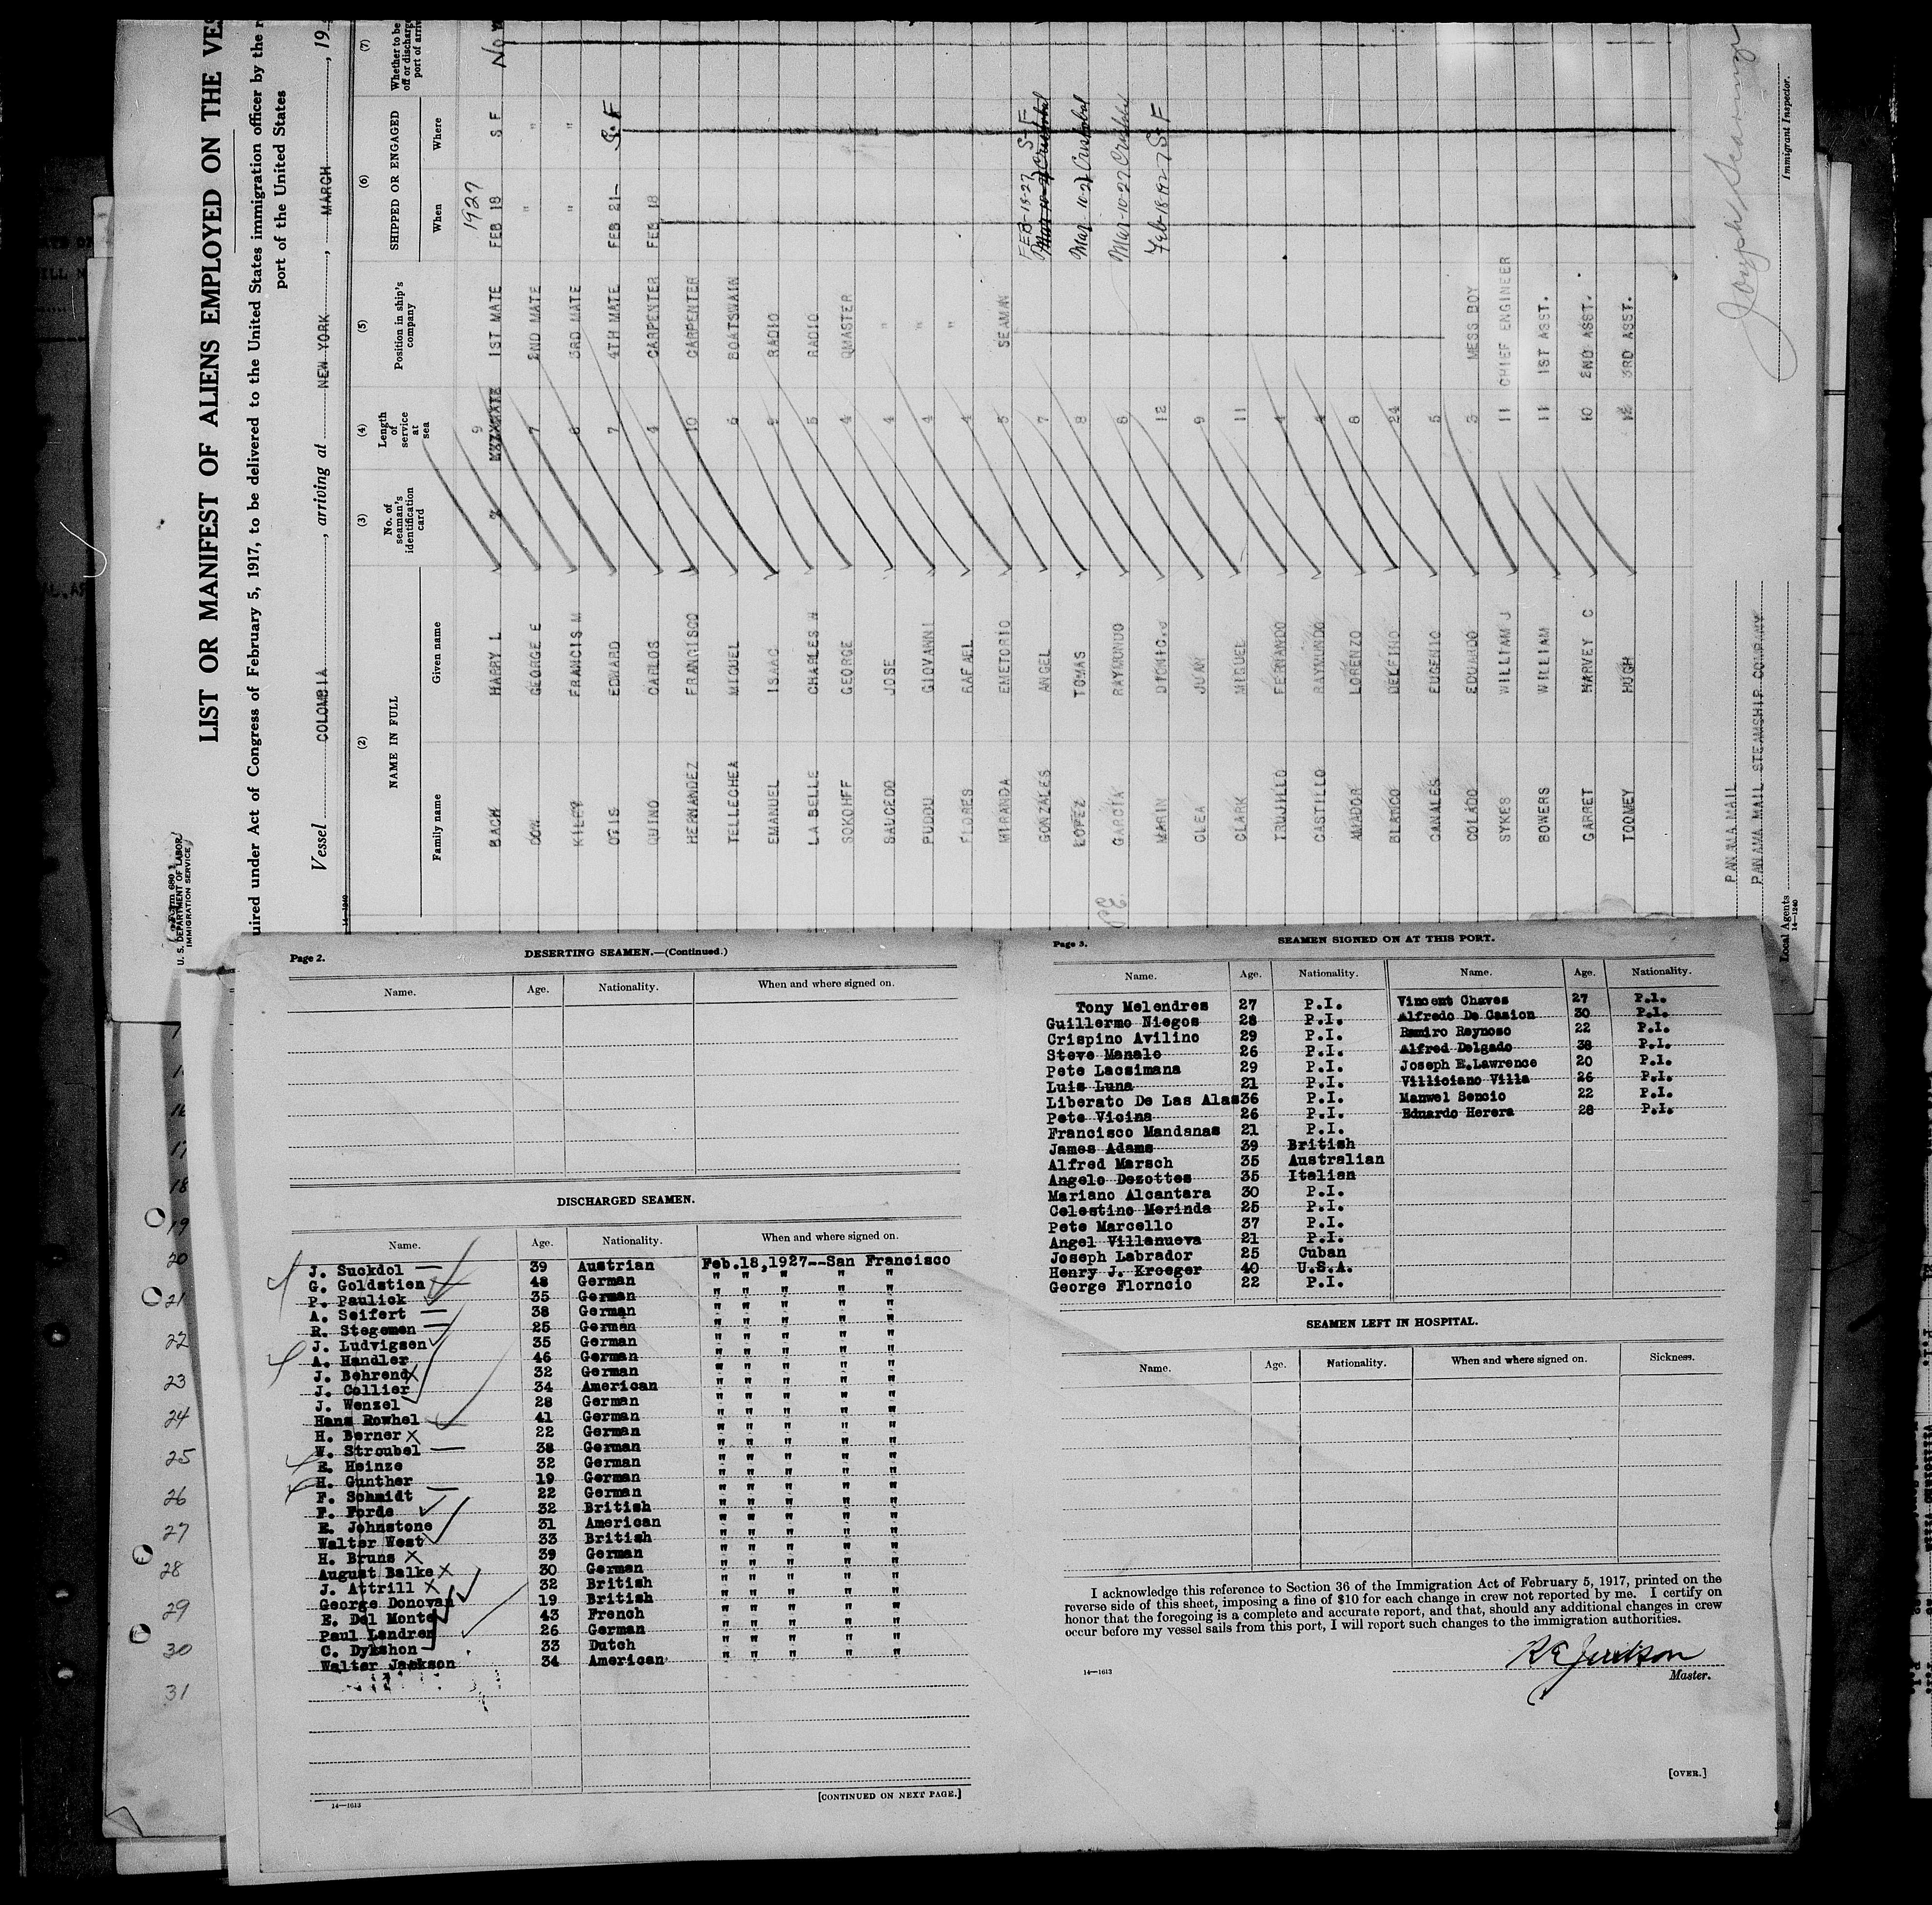 Form 680
U. S. DEPARTMENT OF LABOR
IMMIGRATION SERVICE
LIST OR MANIFEST OF ALIENS EMPLOYED ON THE VES
uired under Act of Congress of February 5, 1917, to be delivered to the United States immigration officer by the r
port of the United States
Vessel COLOMBIA, arriving at NEW YORK, MARCH, 19
14—1240
(2) (3) (4) (5) (6) (7)
NAME IN FULL No. of seaman's identification card Length of service at sea Position in ship's company SHIPPED OR ENGAGED Whether to be off or discharge port of arriv
Family name Given name When Where
1927
BACH HARRY L 9 1ST MATE FEB 18 S F No
COX GEORGE E 7 2ND MATE " "
KILEY FRANCIS M 6 3RD MATE " "
OTIS EDWARD 7 4TH MATE FEB 21- S. F
QUINO CARLOS 4 CARPENTER FEB 18
HERNANDEZ FRANCISCO 10 CARPENTER
TELLECHEA MIGUEL 6 BOATSWAIN
EMANUEL ISAAC 9 RADIO
LA BELLE CHARLES W 5 RADIO
SOKOHFF GEORGE 4 QMASTER
SAUCEDO JOSE 4 "
PUDDU GIOVANNI 4 "
FLORES RAFAEL 4 "
MIRANDA EMETORIO 5 SEAMAN
GONZALES ANGEL 7 FEB-18-27 S-F Mar 10-27 Cristobal
LOPEZ TOMAS 8 Mar 10-27 Cristobal
GARCIA RAYMUNDO 8 Mar-10-27 Cristobal
MARIN DIONIC.O 12 Feb-18-1927 S-F
CLEA JUAN 9
CLARK MIGUEL 11
TRUJILLO FERNANDO 4
CASTILLO RAYMUNDO 4
AMADOR LORENZO 8
BLANCO DELFINO 24
CANALES EUGENIO 5
COLADO EDUARDO 3 MESS BOY
SYKES WILLIAM J 11 CHIEF ENGINEER
BOWERS WILLIAM 11 1ST ASST.
GARRET HARVEY C 10 2ND ASST.
TOOMEY HUGH 12 3RD ASST.
PANAMA MAIL
PANAMA MAIL STEAMSHIP COMPANY
Local Agents
14—1240
Immigrant Inspector.
Page 2.
DESERTING SEAMEN.—(Continued.)
Name. Age. Nationality. When and where signed on.
DISCHARGED SEAMEN.
Name. Age. Nationality. When and where signed on.
J. Suckdol 39 Austrian Feb.18,1927--San Francisco
G. Goldstien 48 German " " " " "
P. Paulick 35 German " " " " "
A. Seifert 38 German " " " " "
R. Stegemen 25 German " " " " "
J. Ludvigsen 35 German " " " " "
A. Handler 46 German " " " " "
J. Behrend 32 German " " " " "
J. Collier 34 American " " " " "
J. Wenzel 28 German " " " " "
Hans Rowhel 41 German " " " " "
H. Berner 22 German " " " " "
W. Stroubel 38 German " " " " "
E. Heinze 32 German " " " " "
H. Gunther 19 German " " " " "
F. Schmidt 22 German " " " " "
F. Forde 32 British " " " " "
E. Johnstone 31 American " " " " "
Walter West 33 British " " " " "
H. Bruns 39 German " " " " "
August Balke 30 German " " " " "
J. Attrill 32 British " " " " "
George Donovan 19 British " " " " "
E. Del Monte 43 French " " " " "
Paul Landren 26 German " " " " "
C. Dykshon 33 Dutch " " " " "
Walter Jackson 34 American " " " " "
14—1613
[CONTINUED ON NEXT PAGE.]
Page 3.
SEAMEN SIGNED ON AT THIS PORT.
Name. Age. Nationality. Name. Age. Nationality.
Tony Melendres 27 P.I. Vincent Chaves 27 P.I.
Guillermo Niegos 28 P.I. Alfredo De Casion 30 P.I.
Crispino Avilino 29 P.I. Ramiro Reynoso 22 P.I.
Steve Manalo 26 P.I. Alfred Delgado 38 P.I.
Pete Lacsimana 29 P.I. Joseph E.Lawrence 20 P.I.
Luis Luna 21 P.I. Villiciano Villa 26 P.I.
Liberato De Las Alas 36 P.I. Manwel Sencio 22 P.I.
Pete Vicina 26 P.I. Eduardo Herera 28 P.I.
Francisco Mandanas 21 P.I.
James Adams 39 British
Alfred Marsch 35 Australian
Angelo Dezottes 35 Italian
Mariano Alcantara 30 P.I.
Celestino Merinda 25 P.I.
Pete Marcello 37 P.I.
Angel Villanueva 21 P.I.
Joseph Labrador 25 Cuban
Henry J. Kroeger 40 U.S.A.
George Florncio 22 P.I.
SEAMEN LEFT IN HOSPITAL.
Name. Age. Nationality. When and where signed on. Sickness.
I acknowledge this reference to Section 36 of the Immigration Act of February 5, 1917, printed on the
reverse side of this sheet, imposing a fine of $10 for each change in crew not reported by me. I certify on
honor that the foregoing is a complete and accurate report, and that, should any additional changes in crew
occur before my vessel sails from this port, I will report such changes to the immigration authorities.
14—1613
Master.
[OVER.]
16
17
18
19
20
21
22
23
24
25
26
27
28
29
30
31